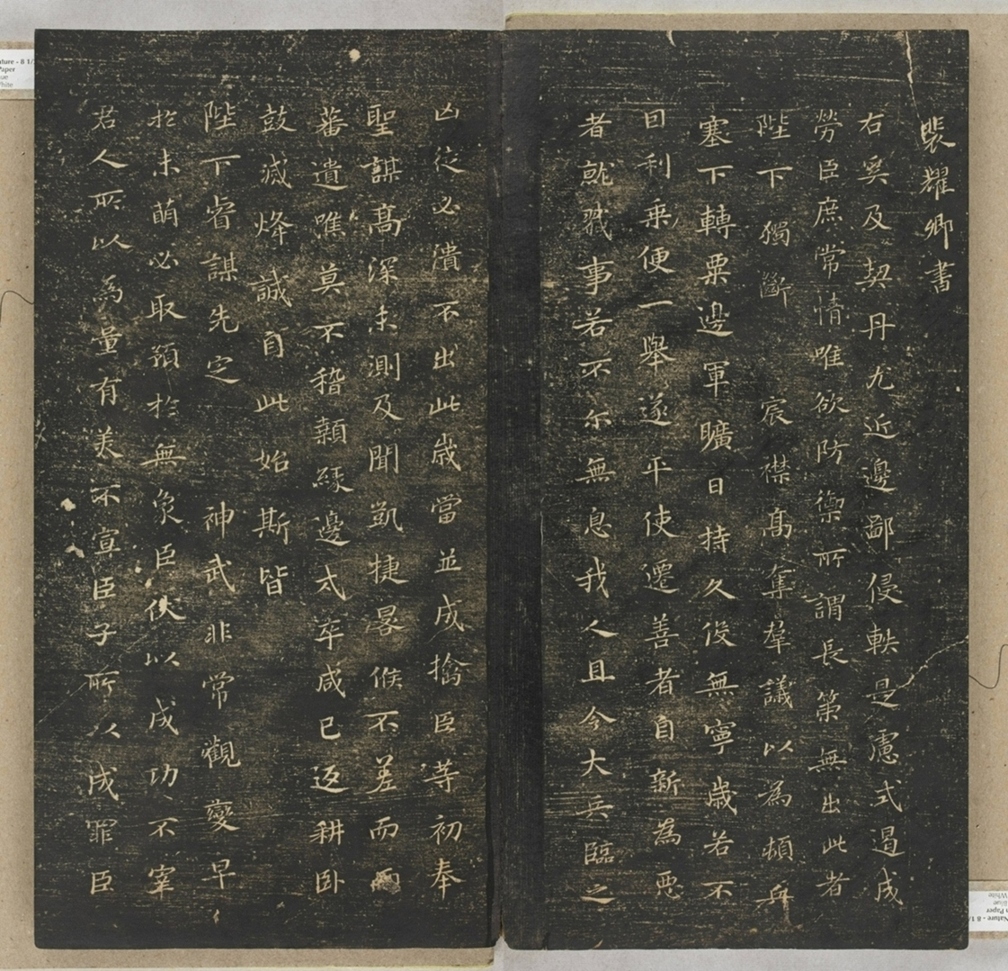 裴耀卿書
右奚及契丹尤近邊鄙侵軼是慮式遏成
勞臣庶常情唯欲防禦所謂長策無出此者
陛下獨斷 宸襟高奪羣議以為頓兵
塞下轉粟邊軍曠日持久後無寧歲若不
因利乘便一舉遂平使遷善者自新為惡
者就戮事若不尒無息我人且今大兵臨之
凶徒必潰不出此歲當並成擒臣等初奉
聖謀高深未測及聞凱捷晷候不差而兩
蕃遺噍莫不稽顙緣邊戍卒咸已返耕卧
鼓滅烽誠自此始斯皆
陛下睿謀先定 神武非常觀變早
於未萌必取預於無象臣伏以成功不宰
君人所以為量有美不宣臣子所以成罪臣